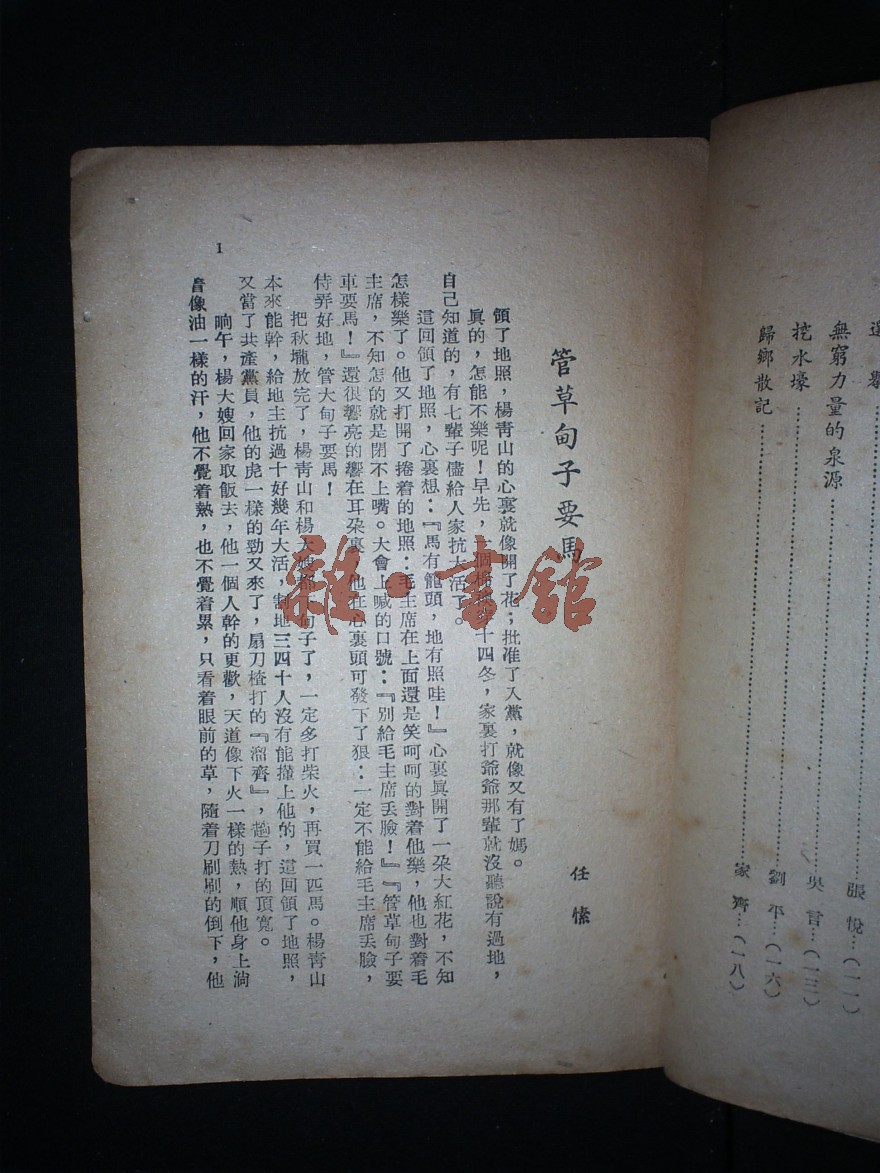 選舉
張悅…(一一)
無窮力量的泉源
吳言…(一三)
挖水壕
劉平…(一六)
歸鄉散記
家齊…(一八)
管草甸子要馬
任愫
領了地照,楊靑山的心裏就像開了花;批准了入黨,就像又有了媽。
眞的,怎能不樂呢!早先,十四冬,家裏打爺爺那輩就沒聽說有過地,
自己知道的,有七輩子儘給人家抗大活了。
這回領了地照,心裏想:『馬有籠頭,地有照哇!』心裏眞開了一朶大紅花,不知
怎樣樂了。他又打開了捲着的地照:毛主席在上面還是笑呵呵的對着他樂,他也對着毛
主席,不知怎的就是閉不上嘴。大會上喊的口號:『別給毛主席丟臉!』『管草甸子要
車要馬!』還很響亮的響在耳朶裏,他在心裏頭可發下了狠:一定不能給毛主席丟臉,
侍弄好地,管大甸子要馬!
把秋壠放完了,楊靑山和楊大嫂都下甸子了,一定多打柴火,再買一匹馬。楊靑山
本來能幹,給地主抗過十好幾年大活,割地三四十人沒有能攆上他的,這回領了地照,
又當了共產黨員,他的虎一樣的勁又來了,扇刀楂打的『溜齊』,趟子打的頂寬。
晌午,楊大嫂回家取飯去,他一個人幹的更歡,天道像下火一樣的熱,順他身上淌
着像油一樣的汗,他不覺着熱,也不覺着累,只看着眼前的草,隨着刀刷刷的倒下,他
1
雜·書館